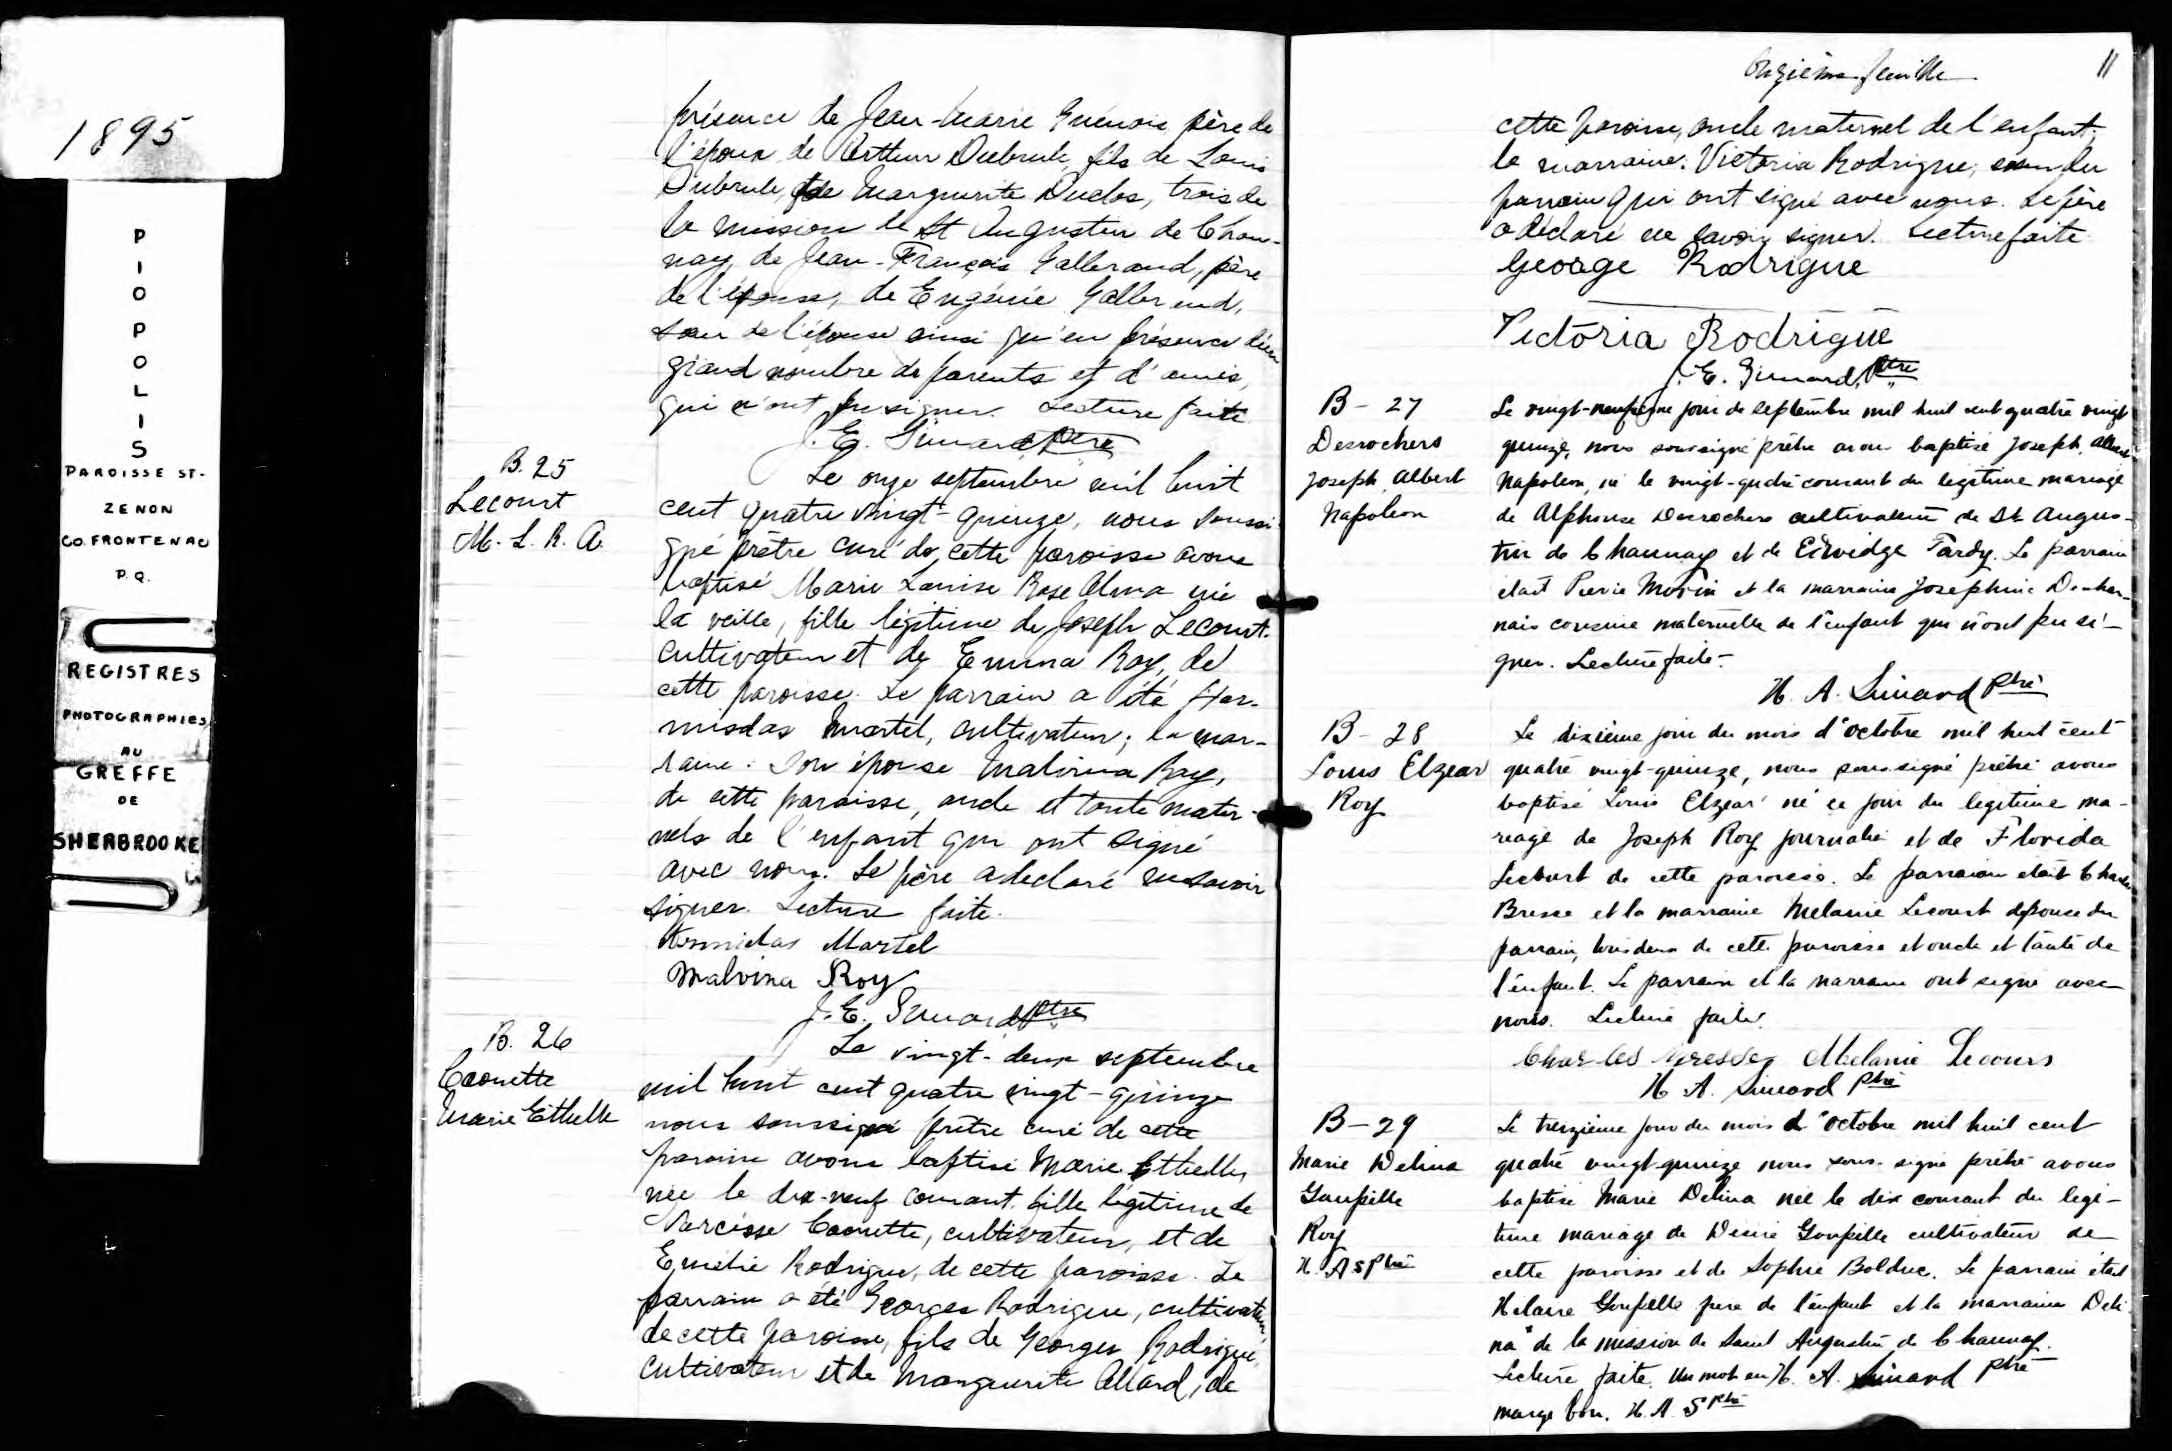 1895
P
I
O
P
O
L
I
S
PAROISSE ST-
ZENON
CO. FRONTENAC
P.Q.
REGISTRES
PHOTOGRAPHIES
AU
GREFFE
DE
SHERBROOKE
présence de Jean-Marie Guénois père de
l'époux de Arthur Dubrule, fils de Louis
Dubrule, & de Marguerite Duclos, trois de
la mission de St Augustin de Chau-
nay, de Jean-François Gallerand, père
de l'épouse, de Eugénie Gallerand,
soeur de l'épouse ainsi qu'en présence d'un
grand nombre de parents et d'amis,
qui n'ont pu signer. Lecture faite
J. E. Simard Ptre
B. 25
Lecourt
M. L. R. A.
Le onze septembre mil huit
cent quatre vingt-quinze, nous soussi-
gné prêtre curé de cette paroisse avons
baptisé Marie Louise Rose Alma née
la veille, fille légitime de Joseph Lecourt
cultivateur et de Emma Roy, de
cette paroisse. Le parrain a été Hor-
misdas Martel, cultivateur; la mar-
raine. Son épouse Malvina Roy,
de cette paroisse, oncle et tante mater-
nels de l'enfant qui ont signé
avec nous. Le père a déclaré ne savoir
signer. Lecture faite.
Hormidas Martel
Malvina Roy
J. E. Simard Ptre
B. 26
Caouette
Marie Ethelle
Le vingt-deux septembre
mil huit cent quatre vingt-quinze
nous soussigné prêtre curé de cette
paroisse avons baptisé Marie Ethelle,
née le dix-neuf courant, fille légitime de
Narcisse Caouette, cultivateur, et de
Emélie Rodrigue, de cette paroisse. Le
parrain a été Georges Rodrigue, cultivateur,
de cette paroisse, fils de Georges Rodrigue,
cultivateur et de Marguerite Allard, de
Onzième feuille 11
cette paroisse, oncle maternel de l'enfant;
la marraine. Victoria Rodrigue, soeur du
parrain qui ont signé avec nous. Le père
a déclaré ne savoir signer. Lecture faite
George Rodrigue
Victoria Rodrigue
J. E. Simard, Ptre
B - 27
Desrochers
Joseph Albert
Napoléon
Le vingt-neufième jour de septembre mil huit cent quatre vingt
quinze, nous soussigné prêtre avons baptisé Joseph Albert
Napoléon, né le vingt-quatre courant du légitime mariage
de Alphonse Desrochers cultivateur de St Augus-
tin de Chaunay et de Edwidge Tardy. Le parrain
était Pierre Morin et la marraine Josephine Deshar-
nais cousine maternelle de l'enfant qui n'ont pu si-
gner. Lecture faite.
H. A. Simard Ptre
B - 28
Louis Elzear
Roy
Le dixième jour du mois d'octobre mil huit cent
quatre vingt-quinze, nous sous-signé prêtre avons
baptisé Louis Elzear né ce jour du legitime ma-
riage de Joseph Roy journalier et de Florida
Lecourt de cette paroisse. Le parrain était Charles
Bresse et la marraine Melanie Lecourt épouse du
parrain, tous deux de cette paroisse et oncle et tante de
l'enfant. Le parrain et la marraine ont signé avec
nous. Lecture faite.
Charles Bresse Melanie Lecours
H A. Simard Ptre
B - 29
Marie Delina
Goupille
Roy
H. A S Ptre
Le treizième jour du mois d'octobre mil huit cent
quatre vingt-quinze nous sous-signé prêtre avons
baptisé Marie Delina née le dix courant du legi-
time mariage de Desiré Goupille cultivateur de
cette paroisse et de Sophie Bolduc. Le parrain était
Helaire Goupille frere de l'enfant et la marraine Deli-
na de la mission de Saint Augustin de Chaunay.
Lecture faite. Un mot en H. A. Simard Ptre
marge bon. H. A. S Ptre